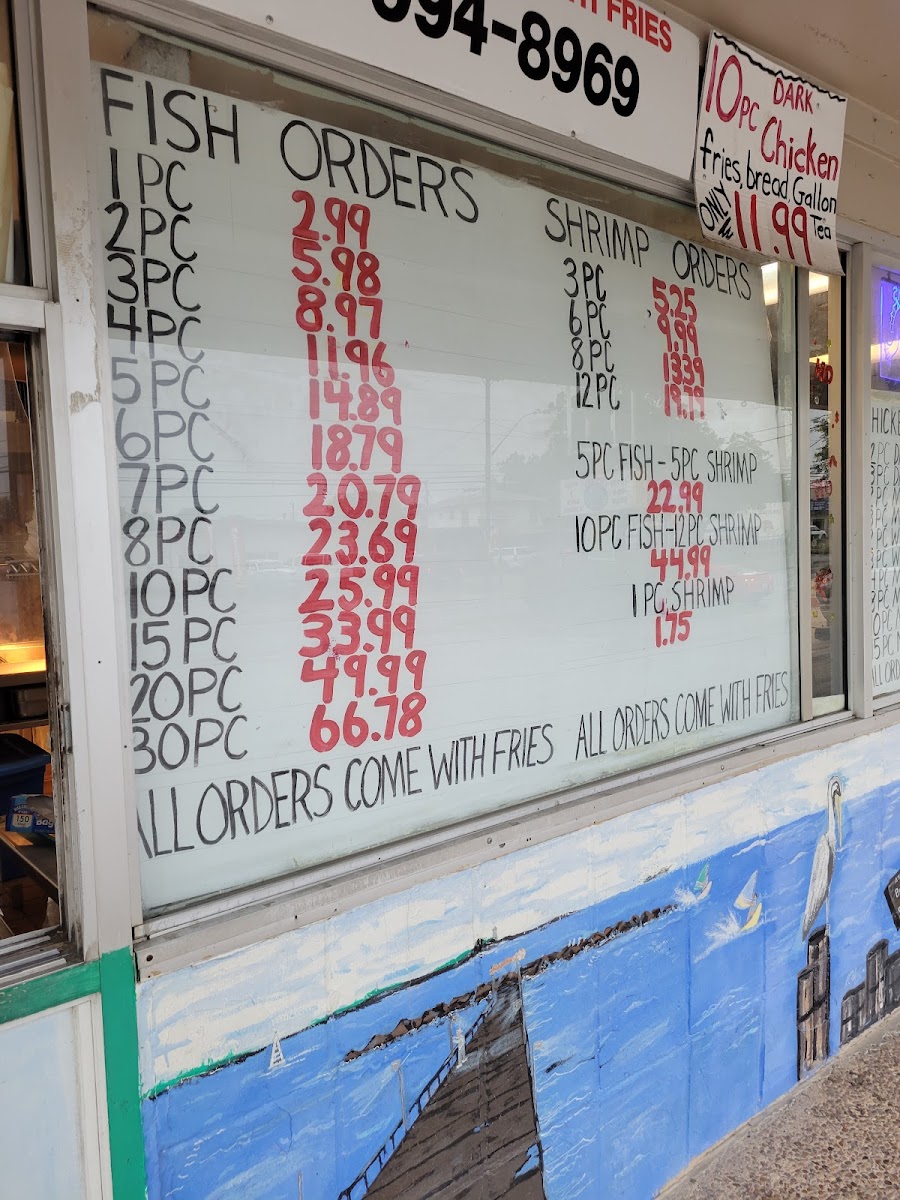 FRIES
094-8969
DARK
10PC Chicken
fries, bread, Gallon
ONLY 11.99 Tea
FISH ORDERS
1PC 2.99
2PC 5.98
3PC 8.97
4PC 11.96
5PC 14.89
6PC 18.79
7PC 20.79
8PC 23.69
10PC 25.99
15PC 33.99
20PC 49.99
30PC 66.78
ALL ORDERS COME WITH FRIES
SHRIMP ORDERS
3PC 5.25
6PC 9.99
8PC 13.39
12PC 19.79
5PC FISH-5PC SHRIMP
22.99
10PC FISH-12PC SHRIMP
44.99
1 PC SHRIMP
1.75
ALL ORDERS COME WITH FRIES